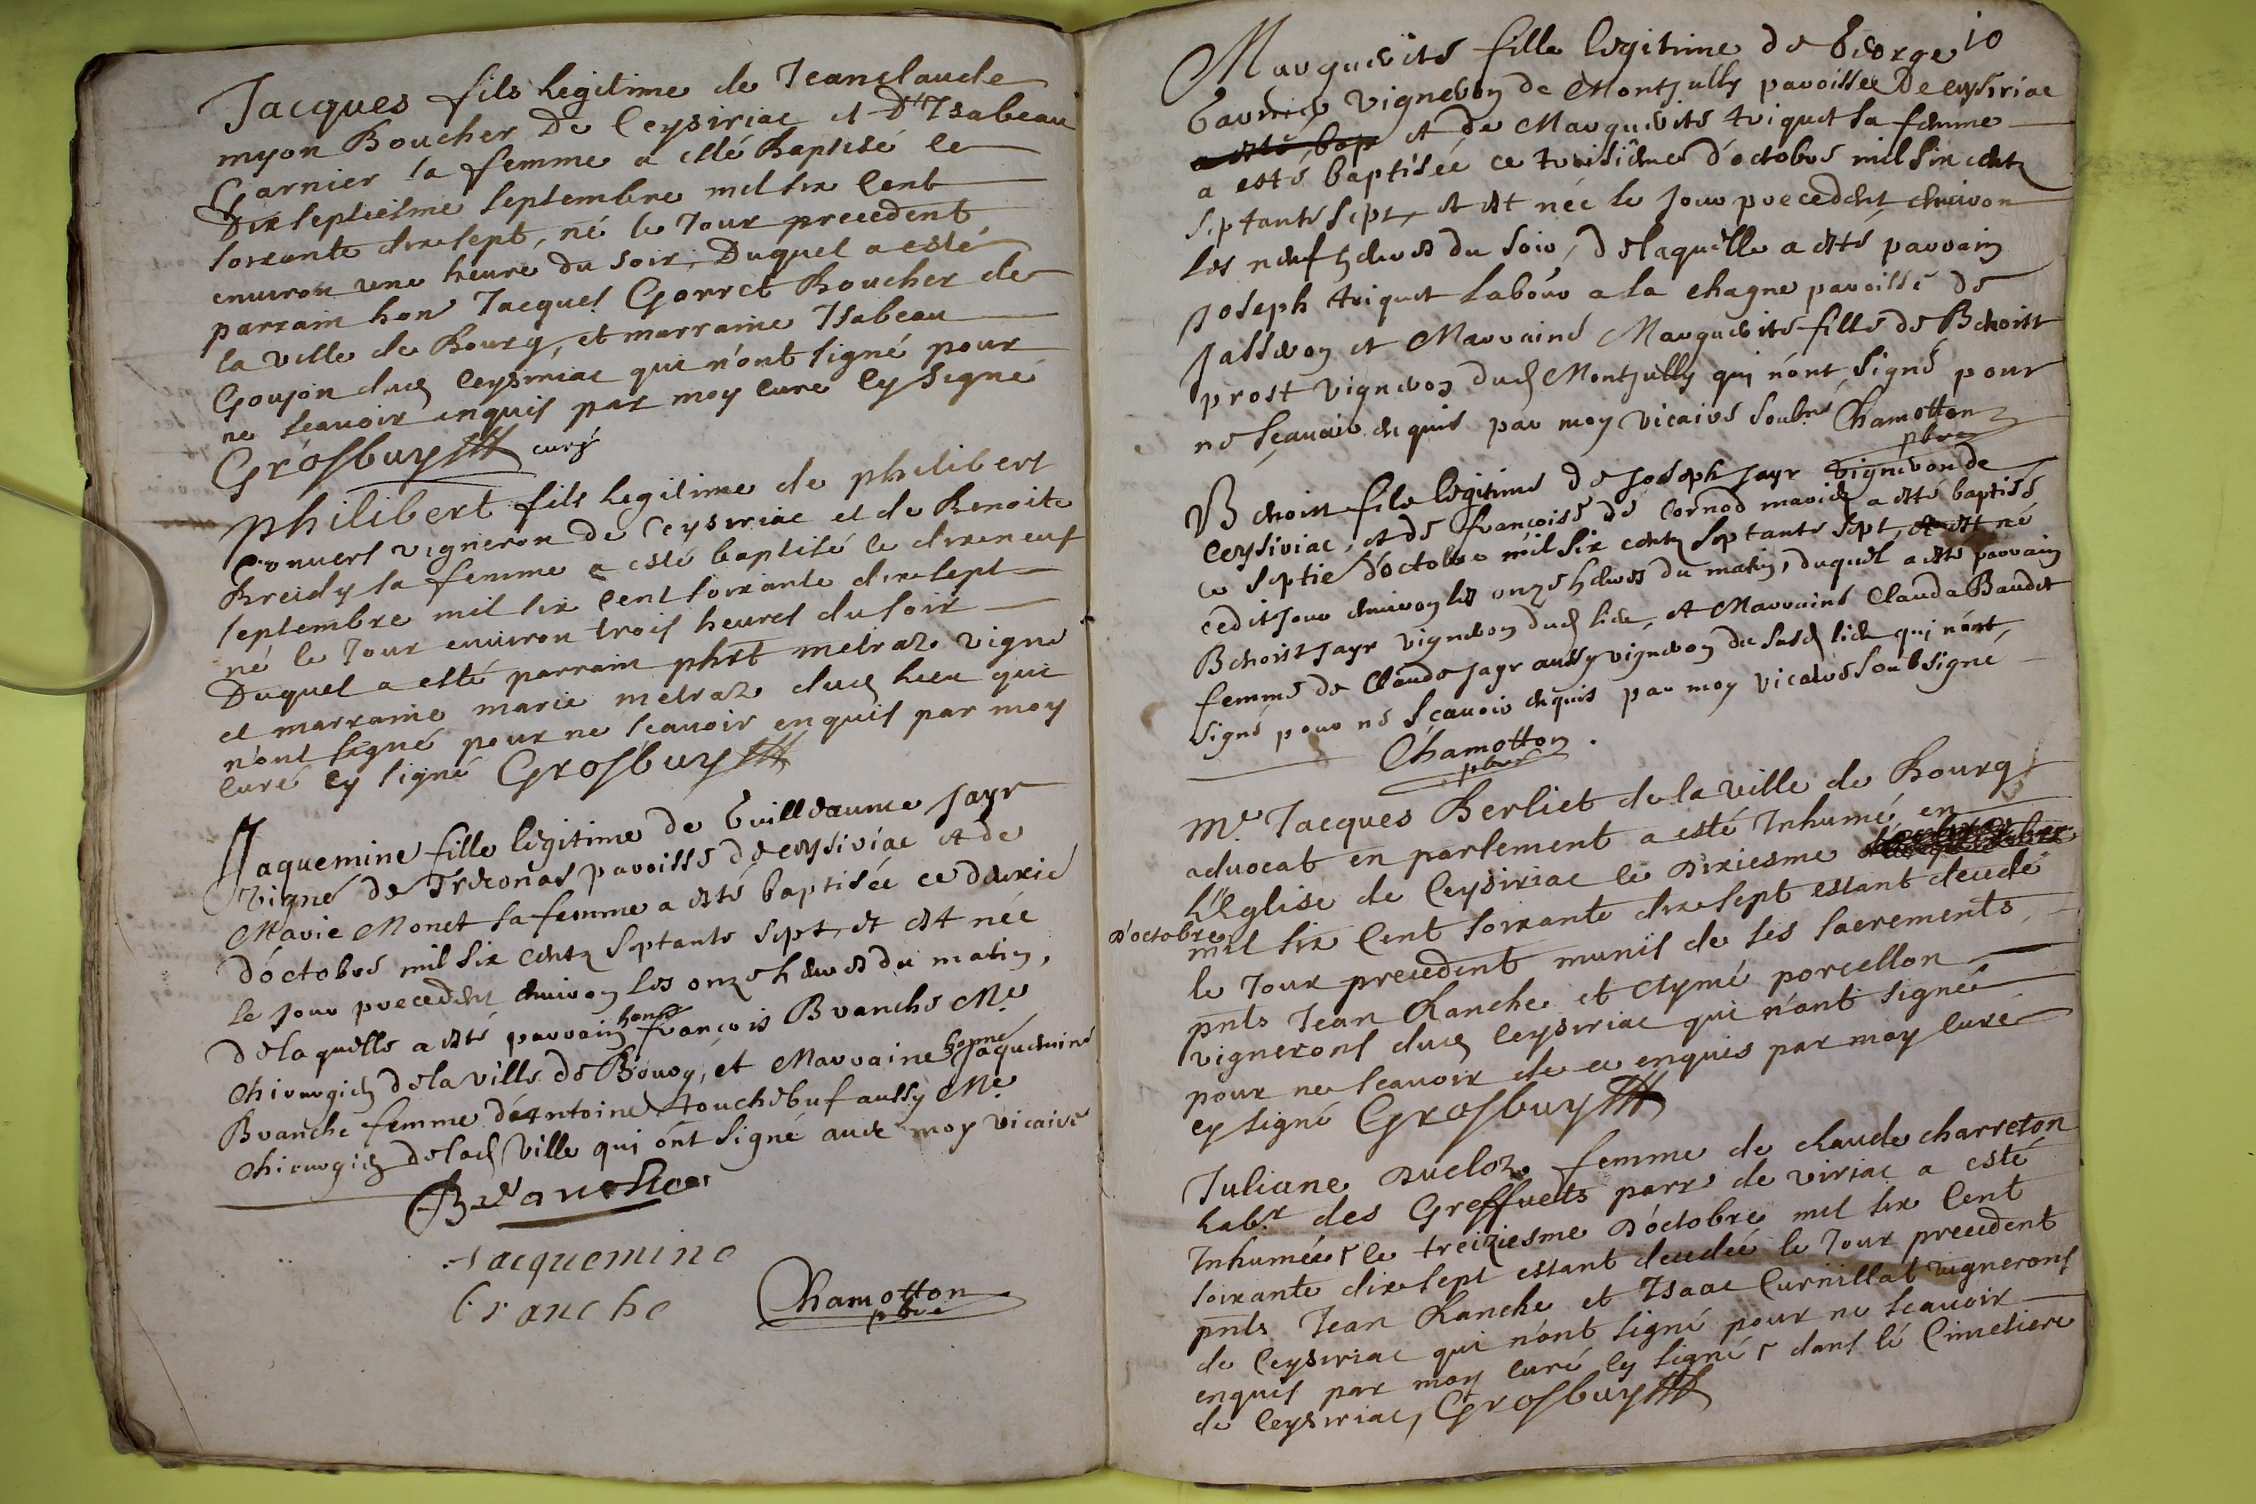 Jacques fils legitime de Jeanclaude
myon Boucher De Ceysiriac et D'Isabeau
Garnier sa femme a esté Baptisé le
Dix septiesme septembre mil six Cent
soixante dix sept, né le Jour precedent
environ une heure du soir, Duquel a esté
parrain hon Jacques Gorret Boucher de
la ville de Bourg, et marraine Isabeau
Goujon dud Ceysiriac qui n'ont signé pour
ne scavoir enquis par moy curé Cy signé
Grosbuy curé
philibert fils legitime de philibert
Convers vigneron de Ceysiriac et de Benoite
Breidy sa femme a esté baptisé le dixneuf
septembre mil six Cent soixante dix sept
né le Jour environ trois heures du soir
Duquel a esté parrain phrt metraz vigne
et marraine marie metraz dud lieu qui
n'ont signé pour ne scavoir enquis par moy
curé Cy signé Grosbuy
Jaquemine fille légitime de Guilleaume Jayr
vigné de Treconas paroisse de ceysiriac et de
Marie Monet sa femme a esté baptisée ce deuxie
d'octobre mil six centz septante sept, et est née
le jour precedent environ les onze heures du matin,
delaquelle a esté parrain honn françois Branche Me
chirurgien dela ville de Bourg, et Marraine honne Jaquemine
Branche femme d'Antoine Touchebuf aussy Me
chirurgien delad ville qui ont signé avec moy vicaire
Branche
Jacquemine
branche Chamotton
pbre
10
Marguerite fille legitime de George
Garnier vigneron de Montjully paroisse De ceysiriac
a esté bap et de Marguerite triquet sa femme
a esté baptisée ce troisiéme d'octobre mil six centz
septante sept, et est née le jour precedent environ
les neuf heures du soir, delaquelle a esté parrain
Joseph triquet labour a la chagne paroisse de
Jasseron et Marraine Marguerite fille de Benoist
prost vigneron dud Montjully qui n'ont signé pour
ne sçavoir enquis par moy vicaire soubné Chamotton
pbre
Benoist fils légitime de Joseph Jayr vigneron de
Ceysiriac, et de françoise de Cornod mariez a esté baptisé
ce septie d'octobre mil six centz septante sept, et est né
cedit jour environ les onze heures du matin, duquel a esté parrain
Benoist Jayr vigneron dud lieu, et Marraine Clauda Baudet
femme de Claude Jayr aussy vigneron de susd lieu qui n'ont
signé pour ne sçavoir enquis par moy vicaire soubsigné
Chamotton
pbre
Me Jacques Berliet de la ville de Bourg
advocat en parlement a esté Inhumé en
L'Eglise de Ceysiriac le Dixiesme
d'octobre mil six Cent soixante dix sept estant decedé
le Jour precedent munis de ses sacrements
pnts Jean Ranche et Aymé porcellon
vignerons dud Ceysiriac qui n'ont signé
pour ne scavoir de ce enquis par moy curé
cy signé Grosbuy
Juliane Ducloz femme de claude charreton
Labr des Greffuets parr de viriac a esté
Inhumée le treiziesme D'octobre mil six Cent
soixante dix sept estant decedée le Jour precedent
pnts Jean Ranche et Isaac Curnillat vignerons
de Ceysiriac qui n'ont signé pour ne scavoir
enquis par moy curé Cy signé dans le Cimetiere
de Ceysiriac, Grosbuy